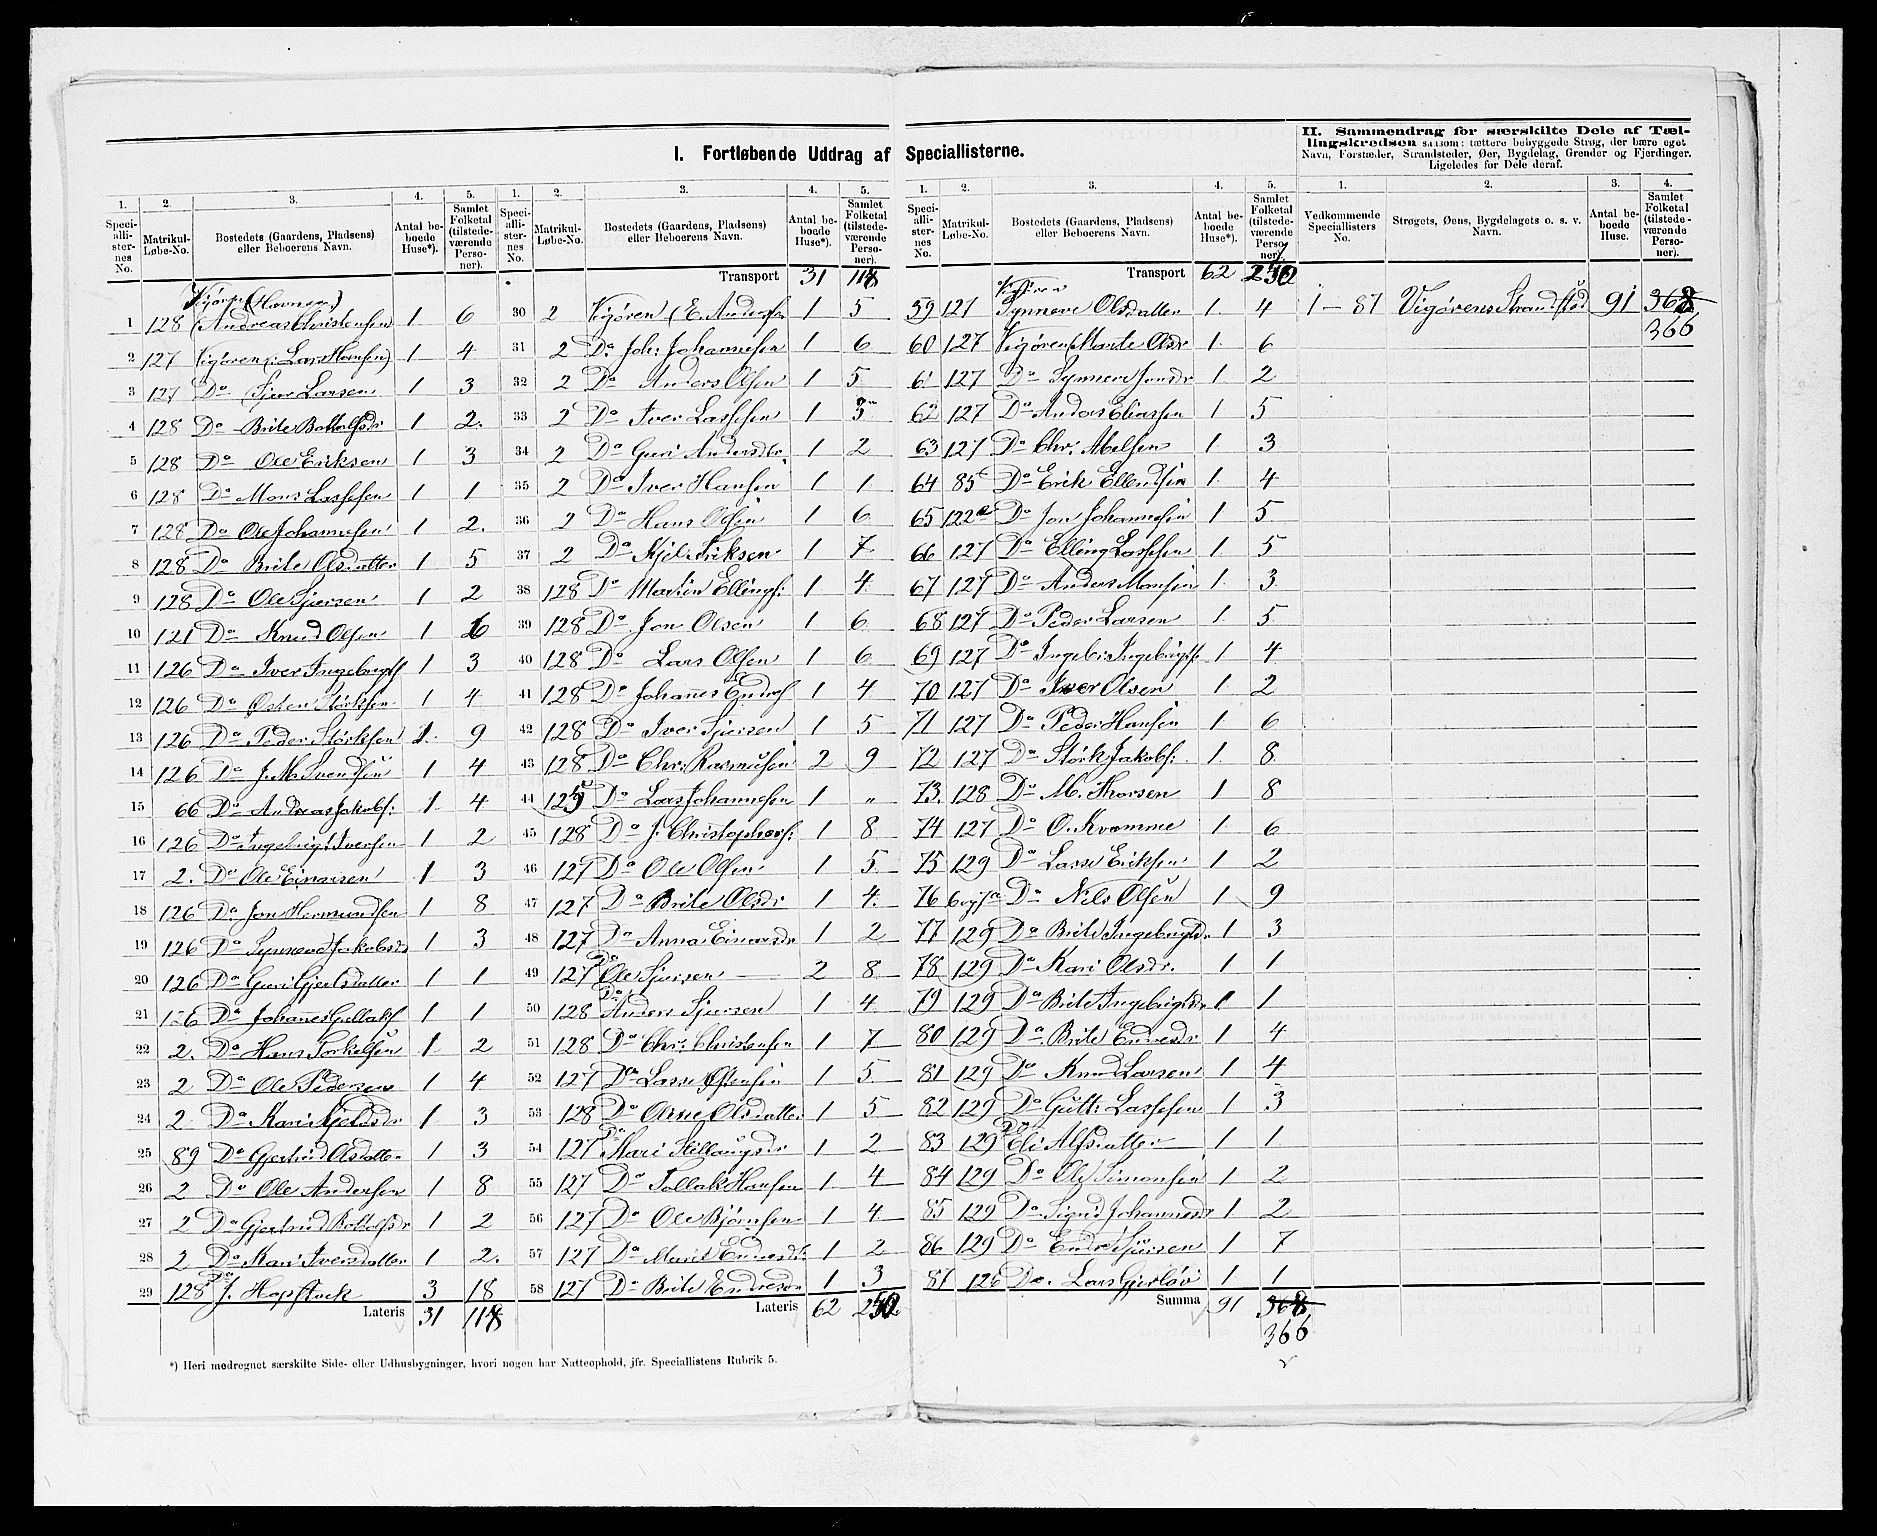 I. Fortløbende Uddrag af Speciallisterne.
II. Sammendrag for særskilte Dele af Tæl-
lingskredsen saasom: tættere bebyggede Strøg, der bære eget
Navn, Forstæder, Strandsteder, Øer, Bygdelag, Grender og Fjerdinger.
Ligeledes for Dele deraf.
1. 2. 3. 4. 5.
Speciallister- nes No. Matrikul- Løbe-No. Bostedets (Gaardens, Pladsens) eller Beboerens Navn. Antal be- boede Huse*). Samlet Folketal (tilstede- værende Perso- ner).
Vigøren (Havnen)
1 128 (Andreas Christensen) 1 6
2 127 Vigøren (: Lars Hansen) 1 4
3 127 Do Sjur Larsen 1 3
4 128 Do Brite Bottolfsdr 1 2.
5 128 Do Ole Eriksen 1 3
6 128 Do Mons Lassesen 1 1
7 128 Do Ole Johannesen 1 2.
8 128 Do Brite Olsdatter 1 5
9 128 Do Ole Sjursen 1 2
10 121 Do Knud Olsen 1 6
11 126 Do Iver Ingebrigts 1 3
12 126 Do Østen Størksen 1 4
13 126 Do Peder Størksen 1. 9
14 126 Do J. M. Svendsen 1 4
15 66 Do Andreas Jakobs: 1. 4
16 126 Do Ingebrigt Iversen 1 2
17 2. Do Ole Einarsen 1 3
18 126 Do Jon Hermundsen 1 8
19 126 Do Synneve Jakobsdr 1 3
20 126 Do Guri Gjertsdatter 1 1
21 126 Do Johanes Gullaks 1 1
22 2. Do Hans Torkelsen 1. 2
23 2 Do Ole Pedersen 1 4
24 2 Do Kari Kjeldsdr 1. 3
25 89 Do Gjertrud Olsdatter 1 3
26 2 Do Ole Andersen 1 8
27 2 Do Gjertrud Bottolfsdr 1 2
28 2 Do Kari Iversdatter 1 2.
29 128 Do J. Hopstock 3 18
Lateris 31 118
*) Heri medregnet særskilte Side- eller Udhusbygninger, hvori nogen har Natteophold, jfr. Speciallistens Rubrik 5.
1. 2. 3. 4. 5.
Speci- alli- ster- nes No. Matrikul- Løbe-No. Bostedets (Gaardens, Pladsens) eller Beboerens Navn. Antal be- boede Huse*). Samlet Folketal (tilstede- værende Perso- ner).
Transport 31 118
30 2 Vigøren (E. Andersen 1 5
31 2 Do Joh: Johannesen 1 6
32 2 Do Anders Olsen 1 5
33 2 Do Iver Lassesen 1 3
34 2 Do Guri Andersdr. 1 2
35 2 Do Iver Hansen 1 1
36 2 Do Hans Olsen 1 6
37 2 Do Kjel Eriksen 1 7
38 128 Do Martin Ellings: 1 4
39 128 Do Jon Olsen 1 6
40 128 Do Lars Olsen 1 6
41 128 Do Johanes Endres 1 4
42 128 Do Iver Sjursen 1 5
43 128 Do Chr: Rasmusen 2 9
44 125 Do Lars Johannesen 1 "
45 128 Do J. Christophers: 1 8
46 127 Do Ole Olsen 1 5
47 127 Do Brite Olsdr 1 4
48 127 Do Anna Einarsdr 1 2
49 127 Do Ole Sjursen 2 8
50 128 Do Anders Sjursen 1 4
51 128 Do Chr: Christensen 1 7
52 127 Do Lasse Østensen 1 5
53 128 Do Arne Olsdatter 1 5
54 127 Do Kari Stillaugsdr 1 2
55 127 Do Tollak Hansen 1 4
56 127 Do Ole Bjørnsen 1 4
57 127 Do Marit Endresdr. 1 2
58 127 Do Brite Endresdr 1 3
Lateris 62 250
1. 2. 3. 4. 5.
Speci- alli- ster- nes No. Matrikul- Løbe-No. Bostedets (Gaardens, Pladsens) eller Beboerens Navn. Antal be- boede Huse*). Samlet Folketal (tilstede- værende Perso- ner).
Transport 62 250
Vigøren
59 127 Synneve Olsdatter 1. 4
60 127 Vigøren (Marite Olsdr 1. 6
61 127 Do Synneve Jonsdr 1 2
62 127 Do Anders Eliassen 1 5
63 127 Do Chr. Melsen 1. 3
64 85 Do Erik Ellendsen 1. 4
65 122a Do Jon Johannesen 1 5
66 127 Do Elling Lassesen 1. 5
67 127 Do Anders Monsen 1. 3
68 127 Do Peder Larsen 1. 5
69 127 Do Ingebr: Ingebrigts. 1 4
70 127 Do Iver Olsen 1 2
71 127 Do Peder Hansen 1. 6
72 127 Do Størk Jakobs: 1. 8
73. 128 Do M. Thorsen 1 8
74 127 Do O. Kvamme 1. 6
75 129 Do Lasse Eriksen 1 2
76 Do Nils Olsen 1 9
77 129 Do Brite Ingebrigtdr 1 3
78 129 Do Kari Olsdr. 1 1
79 129 Do Brite Ingebrigtsdr 1 1
80 129 Do Brite Endresdr 1 4
81 129 Do Knud Larsen 1 4
82 129 Do Gutt: Lassesen 1 3
83 129 Do Eli Alfsdatter 1 1
84 129 Do Ole Simonsen 1 2
85 129 Do Signi Johannesdr 1 2
86 129 Do Endre Sjursen 1 7
87 126 Do. Lars Gjerløv 1 1
Summa 91 368
366
1. 2. 3. 4.
Vedkommende Speciallisters No. Strøgets, Øens, Bygdelagets o. s. v. Navn. Antal be- boede Huse. Samlet Folketal (tilstede- værende Perso- ner).
1–87 Vigørens Strandsted 91 368
366